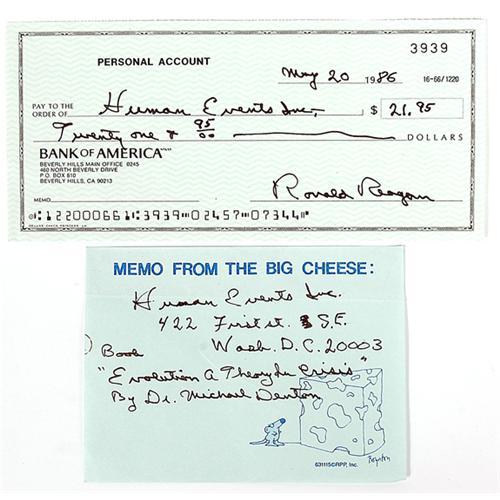 3939
PERSONAL ACCOUNT
May 20 1986 16-66/1220
PAY TO THE
ORDER OF Human Events Inc, $ 21.95
Twenty one & 95/00 DOLLARS
BANK OF AMERICA
BEVERLY HILLS MAIN OFFICE 0245
460 NORTH BEVERLY DRIVE
P.O. BOX 610
BEVERLY HILLS, CA 90213
MEMO Ronald Reagan
⑆122000661⑆3939⑈02457⑈07344⑈
MEMO FROM THE BIG CHEESE:
Human Events Inc.
422 First st. S.E.
Book Wash. D.C. 20003
"Evolution A Theory In Crisis"
By Dr. Michael Denton
Boynton
631115©RPP, Inc.